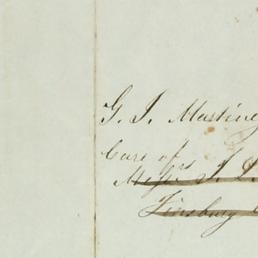 G. J. Masting
Care of
Messrs J. J.
Finsbury